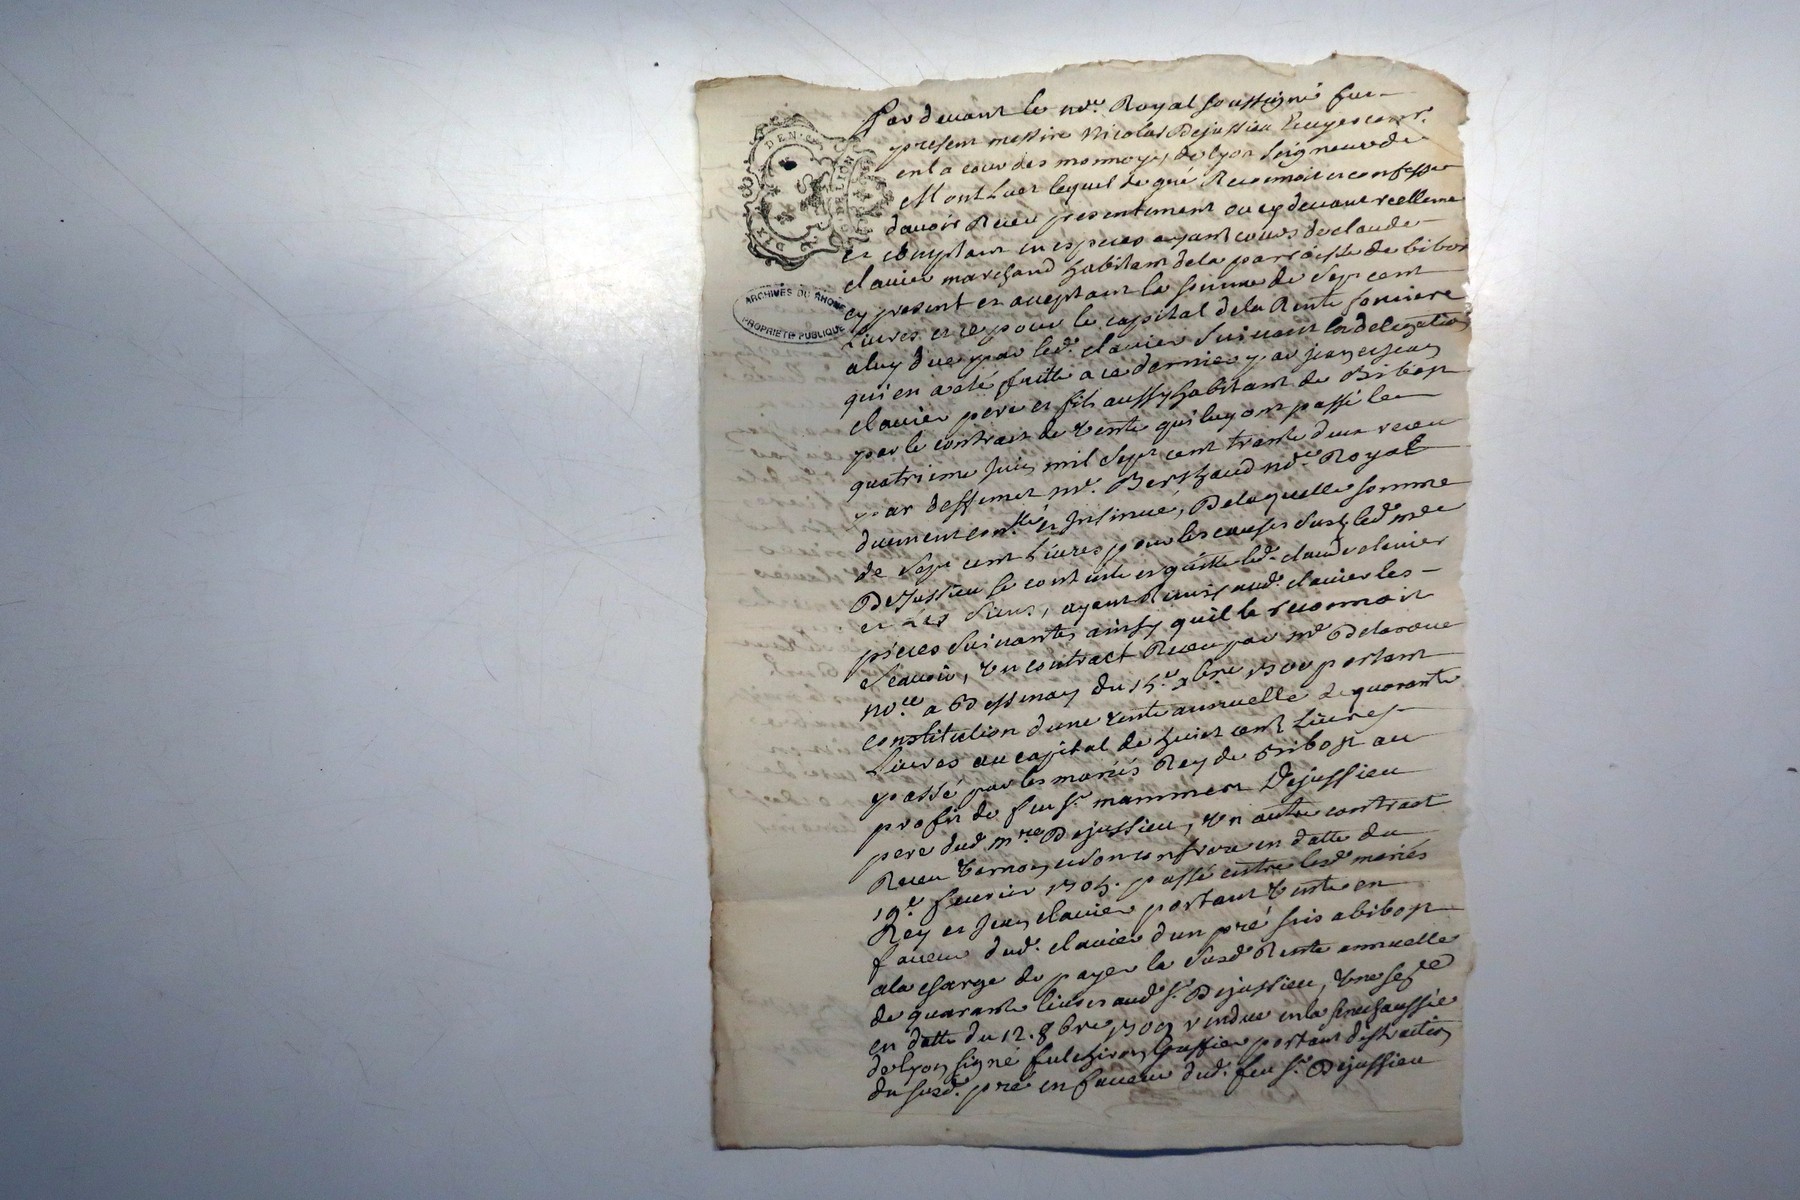 DEN.
DE LION
SIX
ARCHIVES DU RHONE
PROPRIETE PUBLIQUE
Par devant le no.re Royal soussigné fut
present messire Nicolas Dejussieu Ecuyer cons.r
en la cour des monnoyes de Lyon Seigneur de
Montluer lequel de gré Reconnoit et confesse
davoir Receu presentement ou cy devant reellemt
et comptant en especes ayant cours de claude
clavier marchand habitant de la parroisse de bibost
cy present et acceptant la somme de Sept cent
Livres et ce pour le capital de la Rente fonciere
a luy due par led. clavier Suivant la delegation
qui en a eté faitte a ce dernier par jean et jean
clavier pere et fils aussy habitant de Bibost
par le contract de vente quils luy ont passé le
quatrieme Juin mil Sept cent trente deux receu
par deffunct m.e Berthaud no.re Royal
duement con.llé et Insinué, De laquelle somme
de Sept cent Livres pour les causes Susd. led. m.re
Dejussieu se contente en quitte led. claude clavier
et les Siens, ayant Remis aud. clavier les
pieces Suivantes ainsy qu'il le reconnoit
Scavoir, Un contract Receu par m.e Delaroue
no.re a Bessenay du 15.e xbre 1700 portant
constitution d'une rente annuelle de quarante
Livres au capital de huict cent Livres
passé par les mariés Rey de Bibost au
profit de feu S.r mammert Dejussieu
pere dud. m.re Dejussieu, Un autre contract
Receu Vernay et son confrere en datte du
19.e fevrier 1705. passé entre lesd. mariés
Rey et Jean clavier portant Vente en
faveur dud. clavier d'un pré sis a bibost
a la charge de payer la Susd. Rente annuelle
de quarante livres aud. S.r Dejussieu, Une se.ce
en datte du 12. 8bre 1709 rendue en la senechaussée
de Lyon signé fulchiron greffier portant distraction
du susd. pré en faveur dud. feu S.r Dejussieu